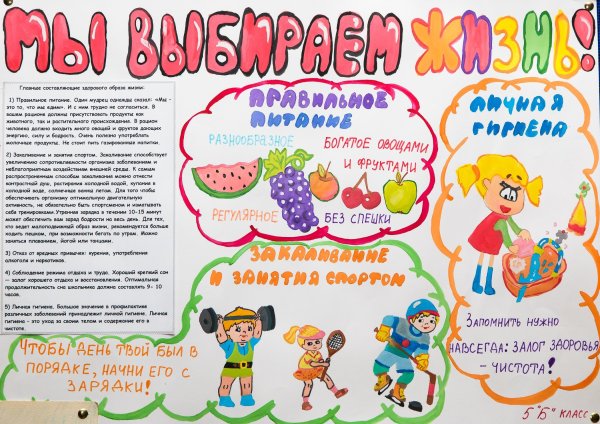 МЫ ВЫБИРАЕМ ЖИЗНЬ!
Главные составляющие здорового образа жизни:
1) Правильное питание. Один мудрец однажды сказал: «Мы -
это то, что мы едим». И с ним трудно не согласиться. В
вашем рационе должны присутствовать продукты как
животного, так и растительного происхождения. В рацион
человека должно входить много овощей и фруктов дающих
энергию, силу и бодрость. Очень полезно употреблять
молочные продукты. Не стоит пить газированные напитки.
2) Закаливание и занятия спортом. Закаливание способствует
увеличению сопротивляемости организма заболеваниям и
неблагоприятным воздействиям внешней среды. К самым
распространенным способам закаливания можно отнести
контрастный душ, растирания холодной водой, купания в
холодной воде, солнечные ванны летом. Для того чтобы
обеспечивать организму оптимальную двигательную
активность, не обязательно быть спортсменом и изматывать
себя тренировками.Утренняя зарядка в течении 10-15 минут
может обеспечить вам заряд бодрости на весь день. Для тех,
кто ведет малоподвижный образ жизни, рекомендуется больше
ходить пешком, при возможности бегать по утрам. Можно
заняться плаванием, йогой или танцами.
3) Отказ от вредных привычек: курения, употребления
алкоголя и наркотиков.
4) Соблюдение режима отдыха и труда. Хороший крепкий сон
— залог хорошего отдыха и восстановления. Оптимальная
продолжительность сна школьника должна составлять 9- 10
часов.
5) Личная гигиена. Большое значение в профилактике
различных заболеваний принадлежит личной гигиене. Личная
гигиена – это уход за своим телом и содержание его в
чистоте.
ПРАВИЛЬНОЕ
ПИТАНИЕ
РАЗНООБРАЗНОЕ
БОГАТОЕ ОВОЩАМИ
И ФРУКТАМИ
РЕГУЛЯРНОЕ
БЕЗ СПЕШКИ
ЛИЧНАЯ
ГИГИЕНА
ЗАПОМНИТЬ НУЖНО
НАВСЕГДА: ЗАЛОГ ЗДОРОВЬЯ
- ЧИСТОТА!
ЗАКАЛИВАНИЕ
И ЗАНЯТИЯ СПОРТОМ
ЧТОБЫ ДЕНЬ ТВОЙ БЫЛ В
ПОРЯДКЕ, НАЧНИ ЕГО С
ЗАРЯДКИ!
5 "Б" КЛАСС